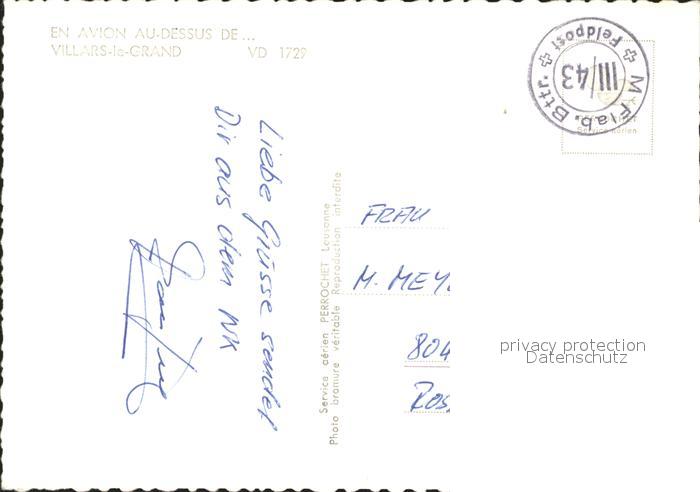 EN AVION AU-DESSUS DE...
VILLARS-le-GRAND VD 1729
M Flab. Bttr. III/43
Feldpost
Service aérien
Liebe Grüsse sendet
Dir aus dem WK
Service aérien PERROCHET Lausanne
Photo bromure véritable Reproduction interdite
FRAU
M. MEY
804
Ros
privacy protection
Datenschutz